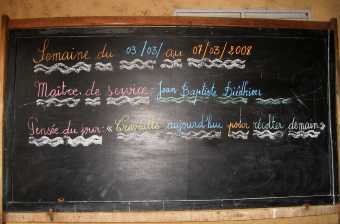 Semaine du 03/03/ au 07/03/2008
Maître de service: Jean Baptiste
Pensée du jour: « Travailler aujourd'hui pour récolter demain»